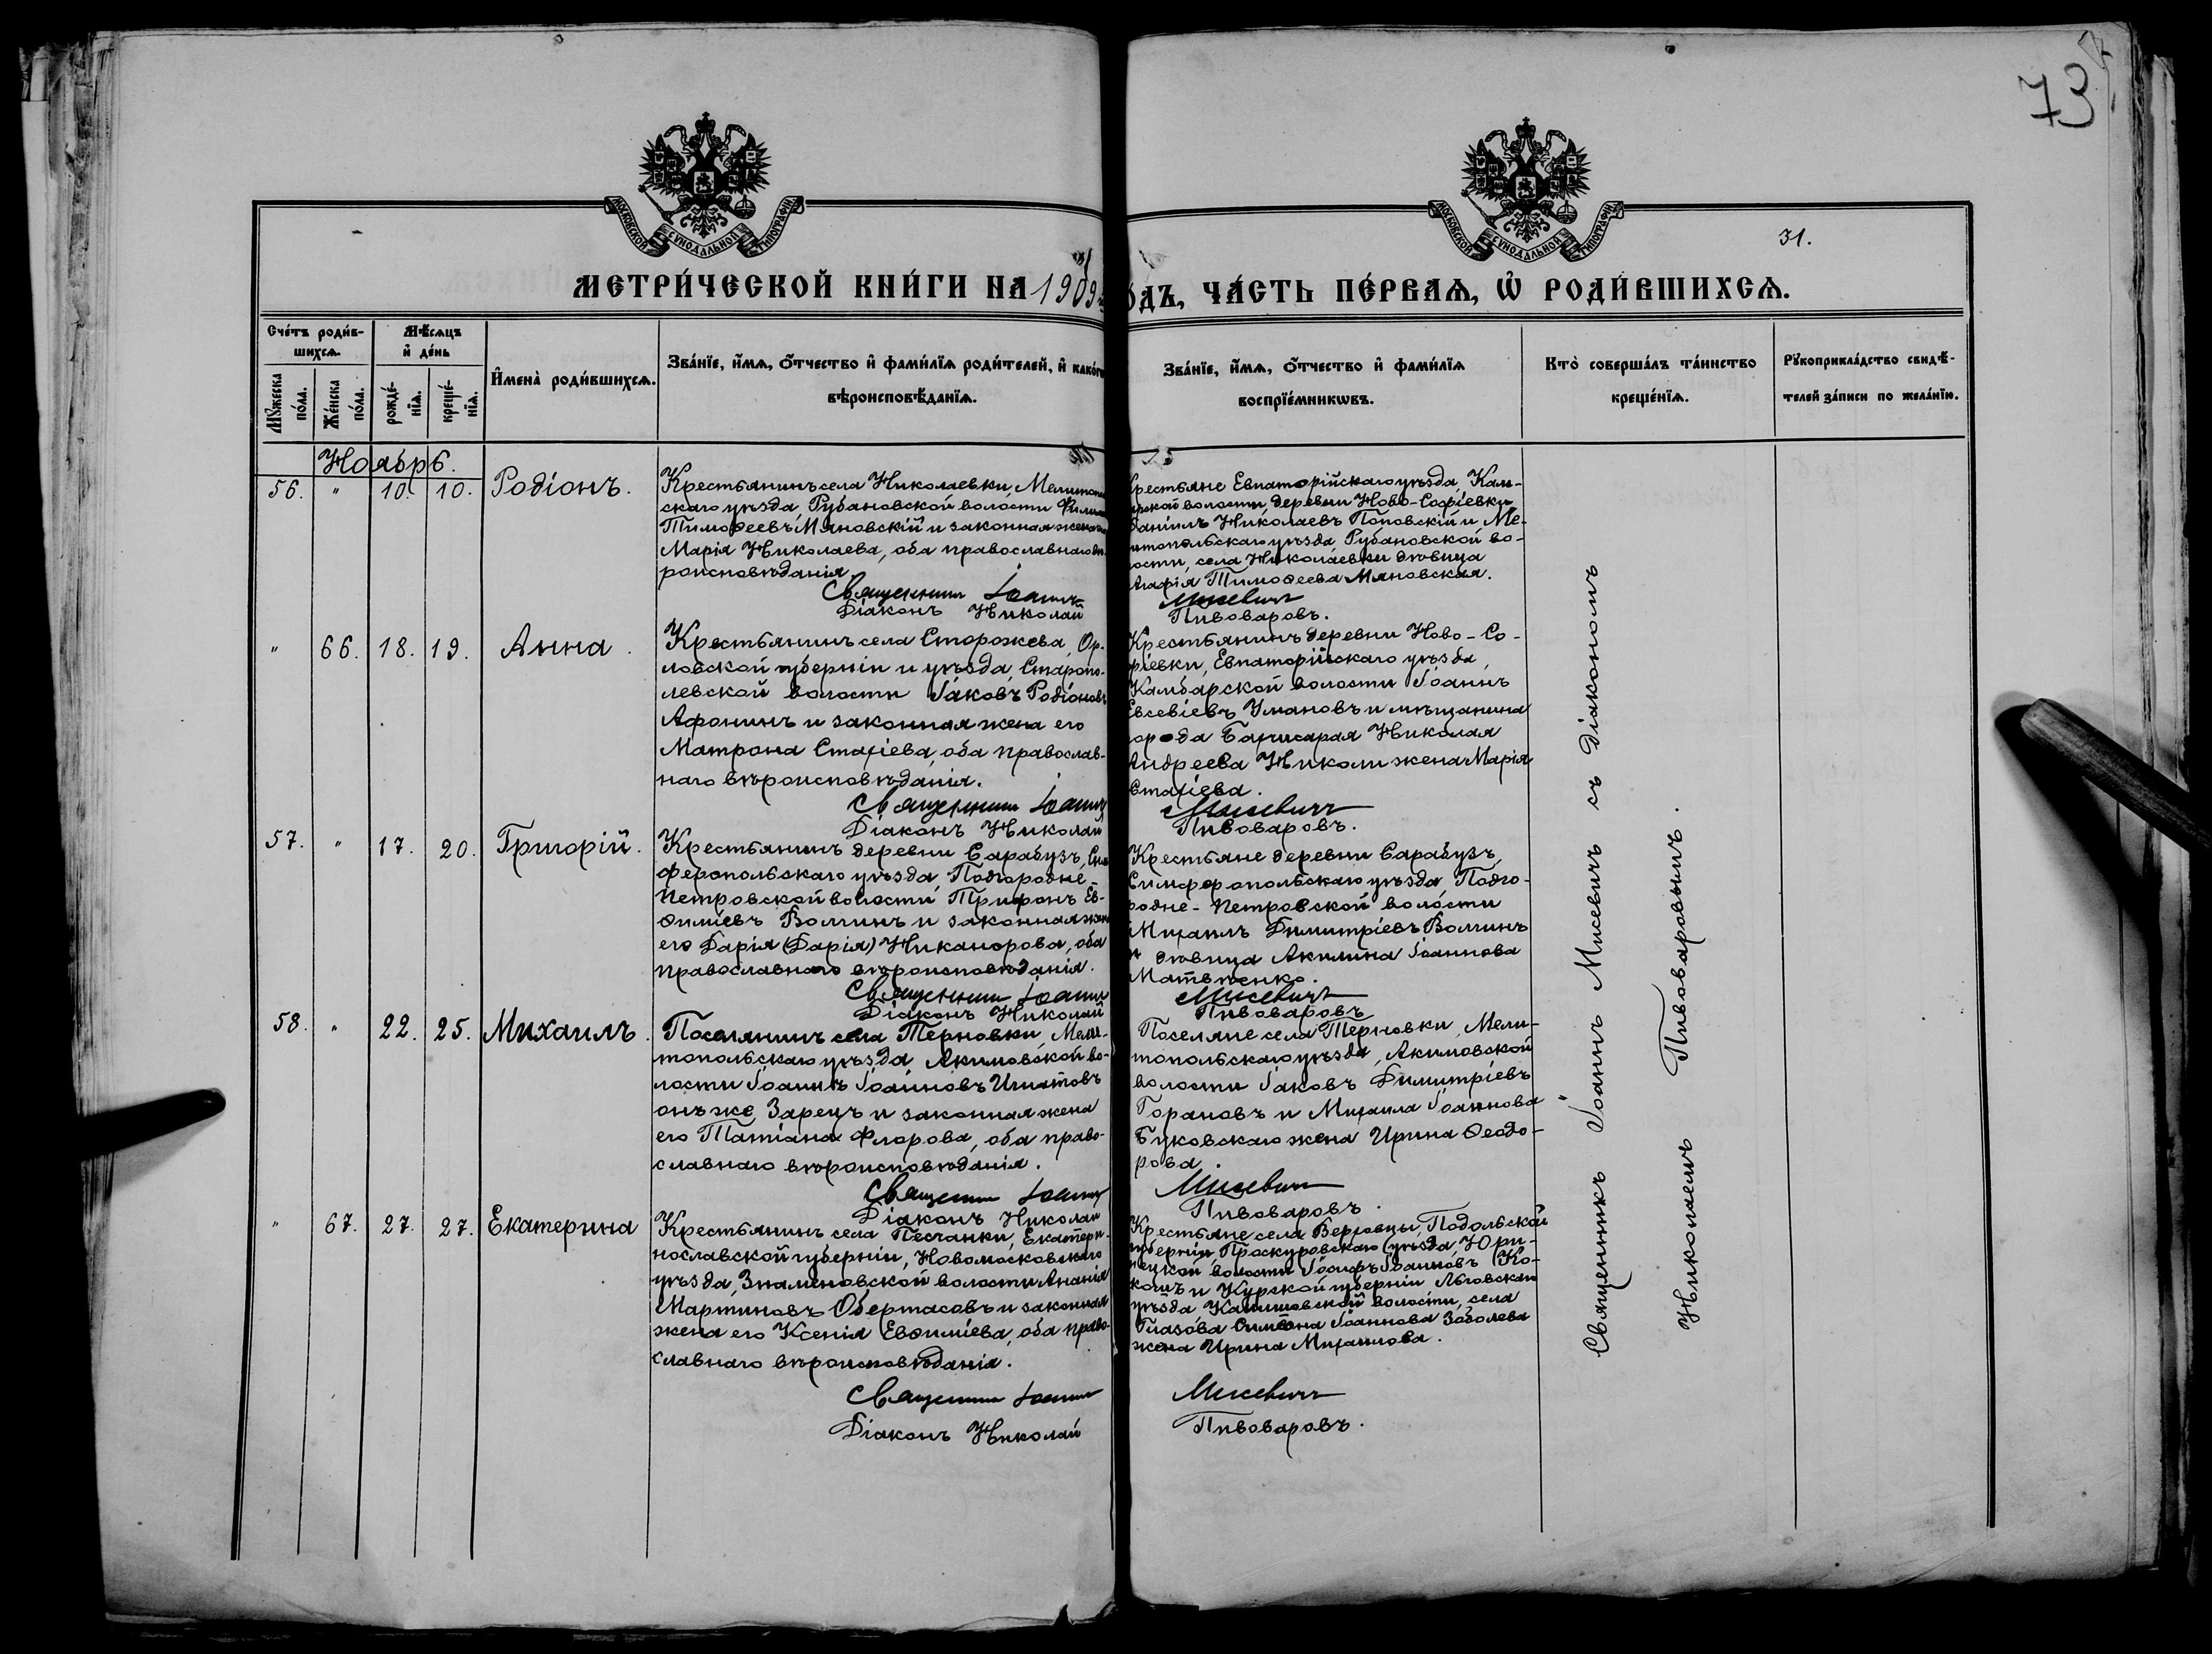 73
31.
МОСКОВСКОЙ СУНОДАЛЬНОЙ ТИПОГРАФИИ
МОСКОВСКОЙ СУНОДАЛЬНОЙ ТИПОГРАФИИ
МЕТРИ́ЧЕСКОЙ КНИ́ГИ НА 1909
ЧА́СТЬ ПЕ́РВАѦ, Ѿ РОДИ́ВШИХСѦ.
Сче́тъ роди́в-
шихсѧ.
Мѣ́сѧцъ
и҆ де́нь
Мꙋ́жеска
по́ла.
Же́нска
по́ла.
рожде́-
нїѧ.
креще́-
нїѧ.
И҆мена̀ роди́вшихсѧ.
Зва́нїе, и҆́мѧ, ѻ҆́тчество и҆ фами́лїѧ роди́телей, и҆
вѣроисповѣ́данїѧ.
Зва́нїе, и҆́мѧ, ѻ҆́тчество и҆ фами́лїѧ
воспрїе́мникѡвъ.
Кто̀ соверша́лъ та́инство
креще́нїѧ.
Рꙋкоприкла́дство свидѣ́-
телей за́писи по жела́нїю.
Ноябрь.
56. " 10. 10. Родіонъ.
Крестьянинъ села Николаевки,
скаго уѣзда, Рубановской волости
Тимоѳеевъ Мяновскій и законная жена
Марія Николаева, оба православнаго вѣ-
роисповѣданія.
Священникъ Іоаннъ
Діаконъ Николай
Крестьяне Евпаторійскаго уѣзда, Кам-
волости, деревни Ново-Софіевки
Даніилъ Николаевъ Поповскій и Ме-
литопольскаго уѣзда Рубановской во-
лости, села Николаевки дѣвица
Агафія Тимоѳеева Мяновская.
Мисевичъ
Пивоваровъ.
" 66. 18. 19. Анна.
Крестьянинъ села Сторожева, Ор-
ловской губерніи и уѣзда, Старопо-
левской волости Іаковъ Родіоновъ
Афонинъ и законная жена его
Матрона Стахіева, оба православ-
наго вѣроисповѣданія.
Священникъ Іоаннъ
Діаконъ Николай
Крестьянинъ деревни Ново-Со-
фіевки, Евпаторійскаго уѣзда,
Камбарской волости Іоаннъ
Евсевіевъ Умановъ и мѣщанина
города Бахчисарая Николая
Андреева Николи жена Марія
Стахіева.
Мисевичъ
Пивоваровъ.
57. " 17. 20. Григорій.
Крестьянинъ деревни Сарабузъ, Сим-
феропольскаго уѣзда, Подгородне-
Петровской волости Трифонъ Ев-
ѳиміевъ Волчинъ и законная жена
его Дарія (Дарія) Никанорова, оба
православнаго вѣроисповѣданія.
Священникъ Іоаннъ
Діаконъ Николай
Крестьяне деревни Сарабузъ,
Симферопольскаго уѣзда, Подго-
родне-Петровской волости
Михаилъ Димитріевъ Волчинъ
и дѣвица Акилина Іоаннова
Матвѣенко.
Мисевичъ
Пивоваровъ
58. " 22. 25. Михаилъ.
Поселянинъ села Терновки, Мели-
топольскаго уѣзда, Акимовской во-
лости Іоаннъ Іоанновъ Игнатовъ
онъ же Зарецъ и законная жена
его Татіана Флорова, оба право-
славнаго вѣроисповѣданія.
Священникъ Іоаннъ
Діаконъ Николай
Поселяне села Терновки, Мели-
топольскаго уѣзда, Акимовской
волости Іаковъ Димитріевъ
Горановъ и Михаила Іоаннова
Буковскаго жена Ирина Ѳеодо-
рова.
Мисевичъ
Пивоваровъ.
" 67. 27. 27. Екатерина
Крестьянинъ села Песчанки, Екатери-
нославской губерніи, Новомосковскаго
уѣзда, Знаменовской волости Ананія
Мартиновъ Обертасовъ и законная
жена его Ксенія Евѳиміева, оба право-
славнаго вѣроисповѣданія.
Священникъ Іоаннъ
Діаконъ Николай
Крестьяне села Верховцы, Подольской
губерніи, Проскуровскаго уѣзда, Юри-
нецкой волости Іосифъ Іоанновъ
и Курской губерніи Льговскаго
уѣзда волости, села
Глазова Симеона Іоаннова Заболева
жена Ирина Михаилова.
Мисевичъ
Пивоваровъ.
Священникъ Іоаннъ Мисевичъ съ Діакономъ
Николаемъ Пивоваровымъ.